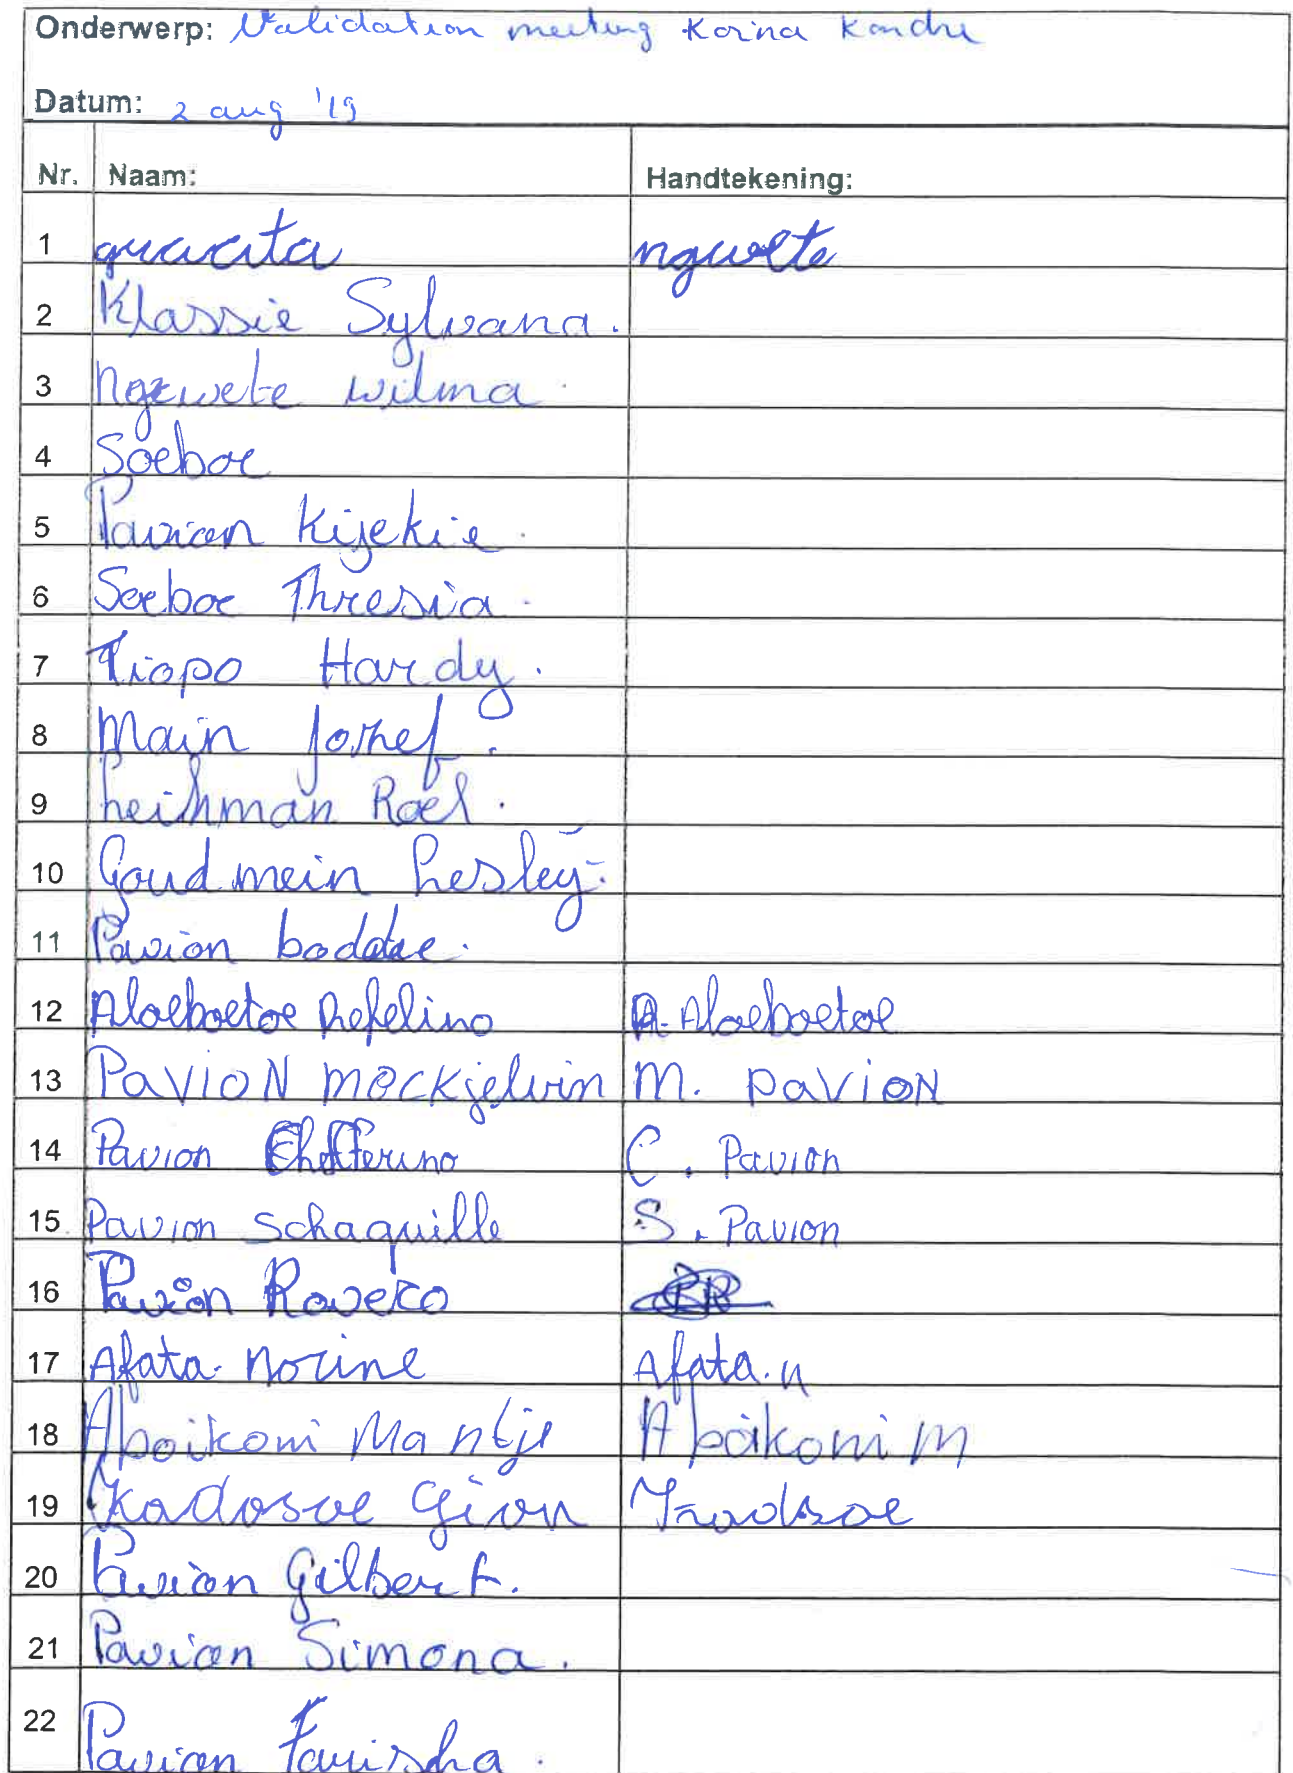 Onderwerp: Validation meeting Korina Kondre
Datum: 2 aug '19
Nr. Naam: Handtekening:
1 quacita ngwete
2 Klassie Sylvana.
3 Ngewete wilma.
4 Soeboe
5 Pavion Kijekie.
6 Soeboe Thresia.
7 Tiopo Hardy.
8 Main Joshef.
9 Leihman Roel.
10 Goudmein Lesley.
11 Pavion
12 Aloeboetoe Refelino A. Aloeboetoe
13 PAVION meckjelvin M. PAVION
14 Pavion Chefferino C. Pavion
15 Pavion Schaquille S. Pavion
16 Pavion Roveco PR
17 Afata Norine Afata. N
18 Aboikoni Mantje Aboikoni M
19 Kadosoe Giovn
20 Pavion Gilbert.
21 Pavion Simona.
22 Pavion Farischa.